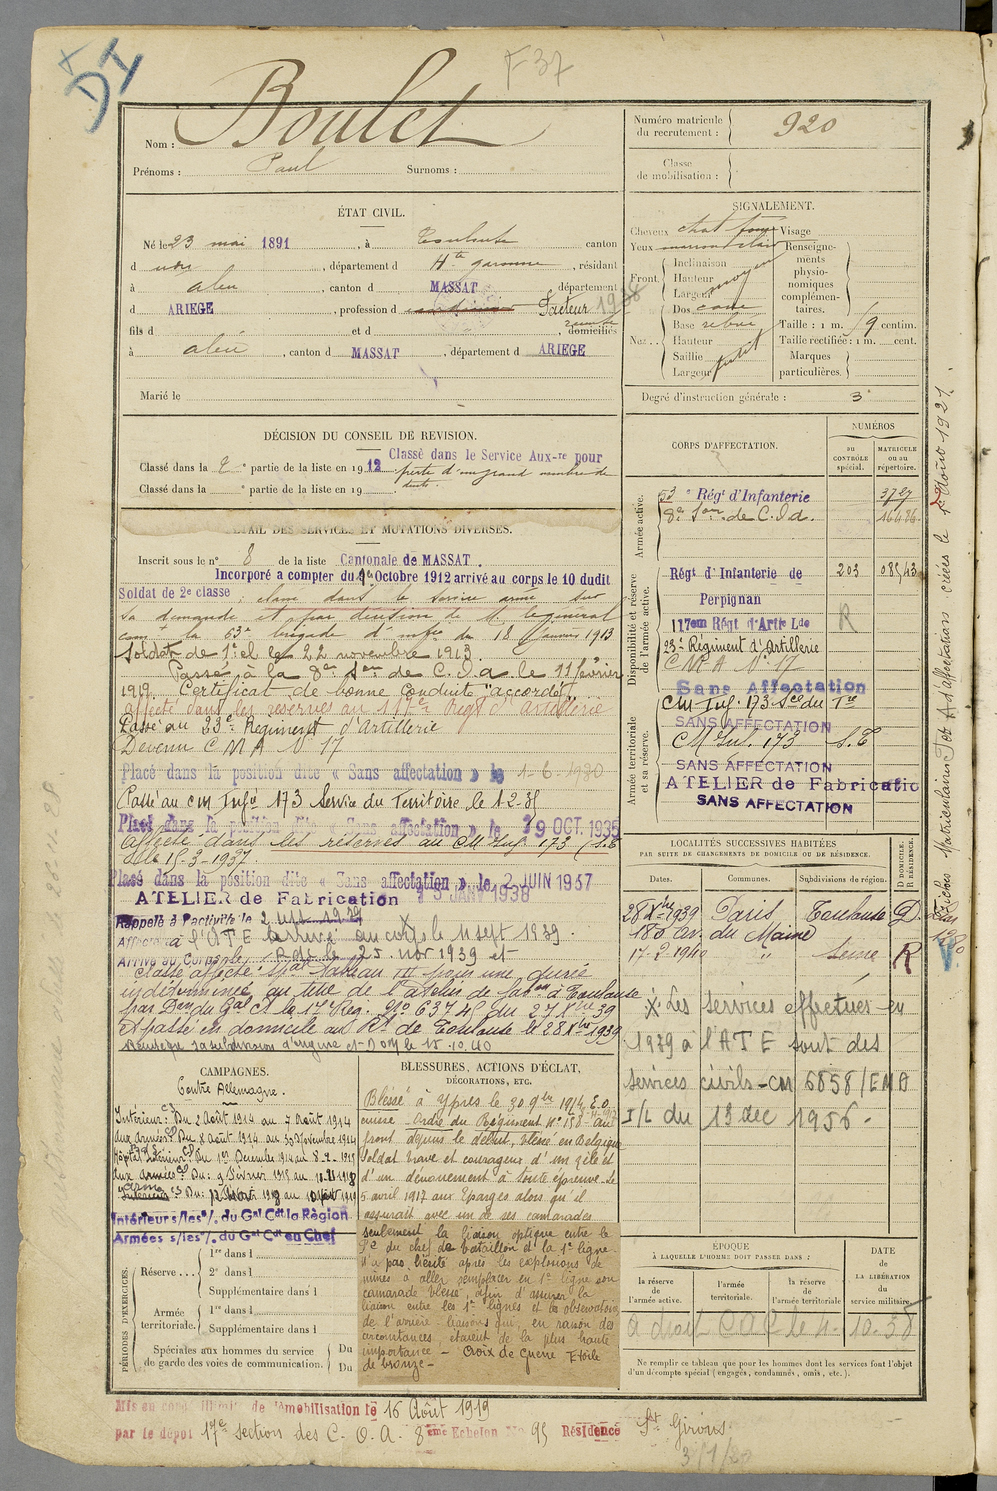 DI
F 37
Nom : Boulet
Prénoms : Paul Surnoms :
Numéro matricule du recrutement : 920
Classe de mobilisation :
ÉTAT CIVIL.
Né le 23 mai 1891, à Toulouse canton
d udu, département d Hte garonne, résidant
à aleu, canton d MASSAT département
d ARIEGE, profession d Facteur 1938
fils d et d domiciliés
à aleu, canton d MASSAT, département d ARIEGE
Marié le
SIGNALEMENT.
Cheveux chat foncé Visage
Yeux marron clair Renseignements physionomiques complémentaires.
Front. Inclinaison
Hauteur
Largeur moyen
Nez Dos cave
Base relevé Taille : 1 m. 69 centim.
Hauteur Taille rectifiée : 1 m. cent.
Saillie Marques
Largeur petit particulières.
Degré d'instruction générale : 3
DÉCISION DU CONSEIL DE REVISION.
Classé dans le Service Aux-re pour
Classé dans la 2e partie de la liste en 1912 perte d'un grand nombre de
Classé dans la e partie de la liste en 19 dents.
DÉTAIL DES SERVICES ET MUTATIONS DIVERSES.
Inscrit sous le n° 8 de la liste Cantonale de MASSAT.
Incorporé a compter du 9 Octobre 1912 arrivé au corps le 10 dudit
Soldat de 2e classe, classé dans le service armé sur
sa demande et par décision de M. le général
comt la 63e brigade d'infie du 18 janvier 1913
Soldat de 1e cl le 22 novembre 1913.
Passé à la 8e Son de C.O.A. le 11 février
1919. Certificat de bonne conduite "accordé"
affecté dans les réserves au 117e Régt d'Artillerie
Passé au 23e Régiment d'Artillerie
Devenu C M A N° 17
Placé dans la position dite « Sans affectation » le 1-6-1930
Passé au cm Infie 173 Service du Territoire, le 1-2-35
Placé dans la position dite « Sans affectation » le 19 OCT. 1935
affecté dans les réserves au CM Inf. 173 (S.T.
le 15-3-1937.
Placé dans la position dite « Sans affectation » le 2 JUIN 1937
ATELIER de Fabrication 15 JANV 1938
Rappelé à l'activité le 2 sept 1939
Affecté à l'ATE arrivé au corps le 11 sept 1939.
Arrivé au Corps le, Rdé le 25 nov 1939 et
Classé affecté spal Tableau III pour une durée
indéterminée au titre de l'atelier de fabon à Toulouse
par Don du Gal Ct la 17e Rég. N° 6374 du 27 Xbre 39
Et passé en domicile au Rt de Toulouse le 28 Xbre 1939
CORPS D'AFFECTATION.
NUMÉROS
au CONTRÔLE spécial.
MATRICULE ou au répertoire.
Armée active.
53e Régt d'Infanterie 3727
8e Son de C.O.A. 16486
Disponibilité et réserve de l'armée active.
Régt d'Infanterie de 203 08543
Perpignan
117em Régt d'Artie Lde R
23e Régiment d'Artillerie
CMA N° 17
Sans Affectation
Armée territoriale et sa réserve.
CM Inf. 173 Sce du Tre
SANS AFFECTATION
CM Inf. 173 S.T.
SANS AFFECTATION
ATELIER de Fabricatio
SANS AFFECTATION
LOCALITÉS SUCCESSIVES HABITÉES
PAR SUITE DE CHANGEMENTS DE DOMICILE OU DE RÉSIDENCE.
Dates. Communes. Subdivisions de région. D DOMICILE. R RÉSIDENCE.
28 Xbre 1939 Paris Toulouse D
186 Av. du Maine
17-2-1940 " Seine R
X Les services effectués en
1939 à l'ATE sont des
services civils - CM 6858/EMA
I/L du 13 dec 1956 -
CAMPAGNES.
Contre Allemagne.
Intérieur : Du 2 Août 1914 au 7 Août 1914
aux armées : Du 8 août 1914 au 30 Novembre 1914
Intérieur : Du 1er Décembre 1914 au 8-2-1915
aux armées : Du 9 Février 1915 au
Intérieur s/les o/. du Gal Cdt la Région
Armées s/les o/. du Gal Cdt en Chef
PÉRIODES D'EXERCICES.
Réserve . . . 1re dans l
2e dans l
Supplémentaire dans l
Armée territoriale. 1re dans l
Supplémentaire dans l
Spéciales aux hommes du service de garde des voies de communication. Du
Du
BLESSURES, ACTIONS D'ÉCLAT,
DÉCORATIONS, ETC.
Blessé à Ypres le 30 9bre 1914 E.O.
Ordre du Régiment N° 158 au
front depuis le début, blessé en Belgique
Soldat brave et courageux d'un zèle et
d'un dévouement à toute épreuve. Le
5 avril 1917 aux Eparges alors qu'il
assurait avec un de ses camarades
seulement la liaison optique entre le
P.C. du chef de bataillon et la 1e ligne.
n'a pas hésité après les explosions de
mines à aller remplacer en 1e ligne son
camarade blessé, afin d'assurer la
liaison entre les 1es lignes et les observatoires
de l'arrière - liaisons qui, en raison des
circonstances, étaient de la plus haute
importance - Croix de guerre Etoile
de bronze -
ÉPOQUE
À LAQUELLE L'HOMME DOIT PASSER DANS :
la réserve de l'armée active.
l'armée territoriale.
la réserve de l'armée territoriale
DATE de LA LIBÉRATION du service militaire.
10-38
Ne remplir ce tableau que pour les hommes dont les services font l'objet d'un décompte spécial (engagés, condamnés, omis, etc.).
Mis en congé illimité de démobilisation le 16 Août 1919
par le dépôt 17e Section des C. O. A. 8ème Echelon No 95 Résidence St Girons
3/1/20